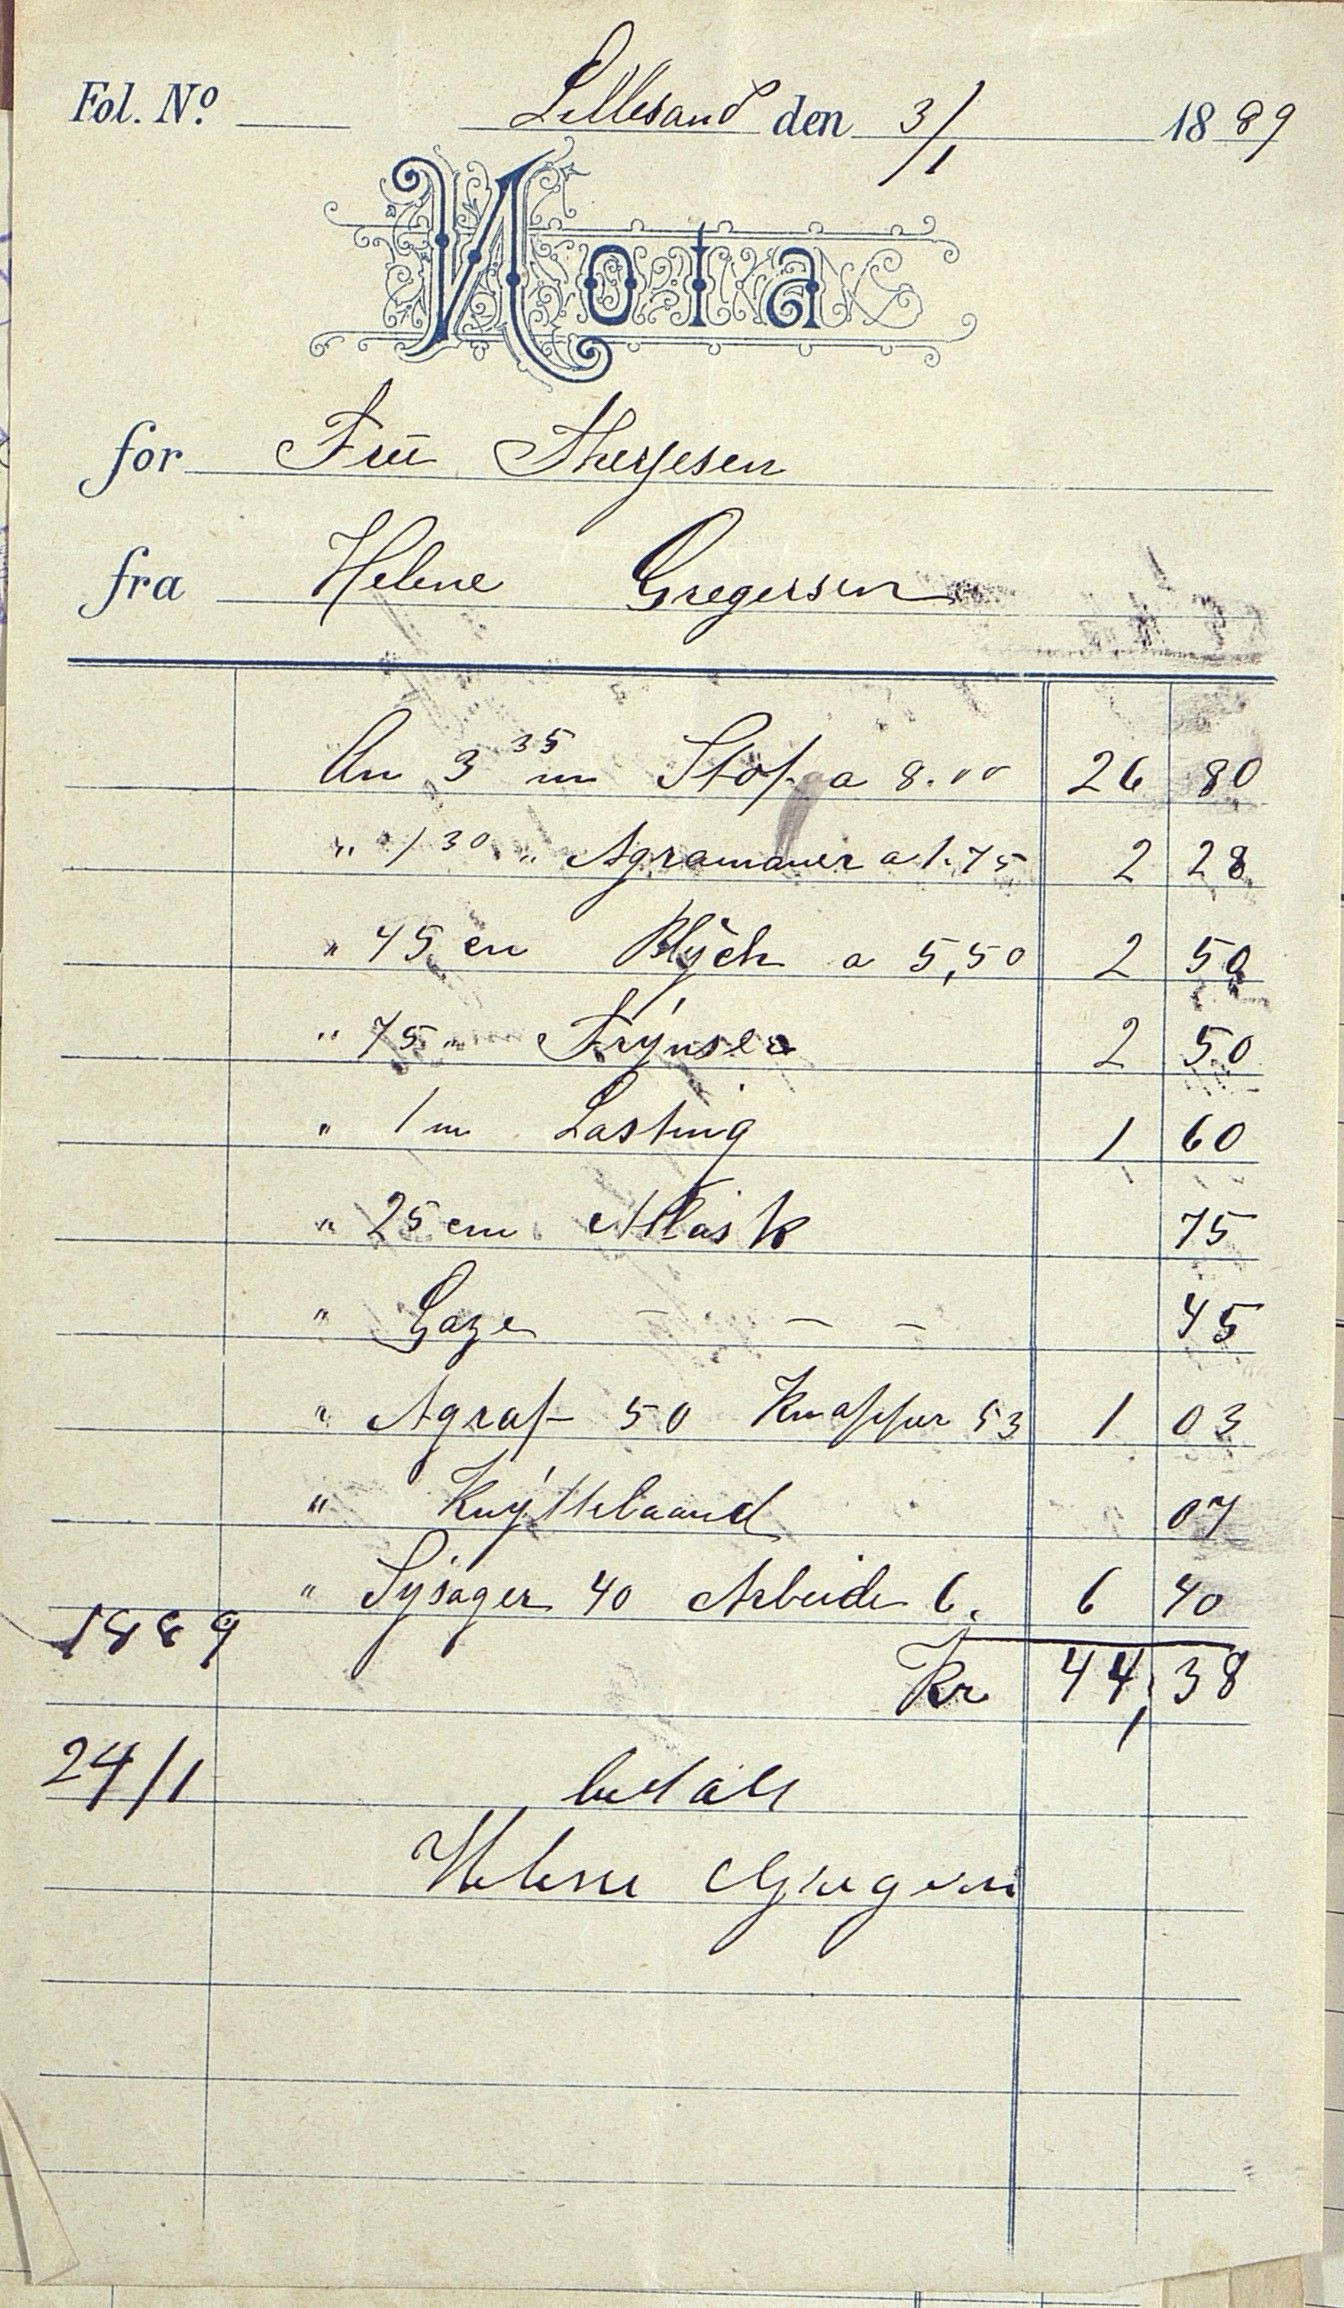 Fol. No. Lillesand den 3/1 1889
Nota
for Frü Therjesen
fra Helene Gregersen
An 3 35 m Stof a 8.00 26 80
" 1 30 " Agramaner a 1.75 2 28
" 45 cm Plÿch a 5,50 2 50
" 75 " Frynser 2 50
" 1 m Lasting 1 60
" 25 cm Atlask 75
" Gaze — — — 45
" Agraf 50 Knapper 53 1 03
" Knyttebaand 07
" Sysager 40 Arbeide 6. 6 40
1889
Kr 44,38
24/1 betalt
Helene Gregersen